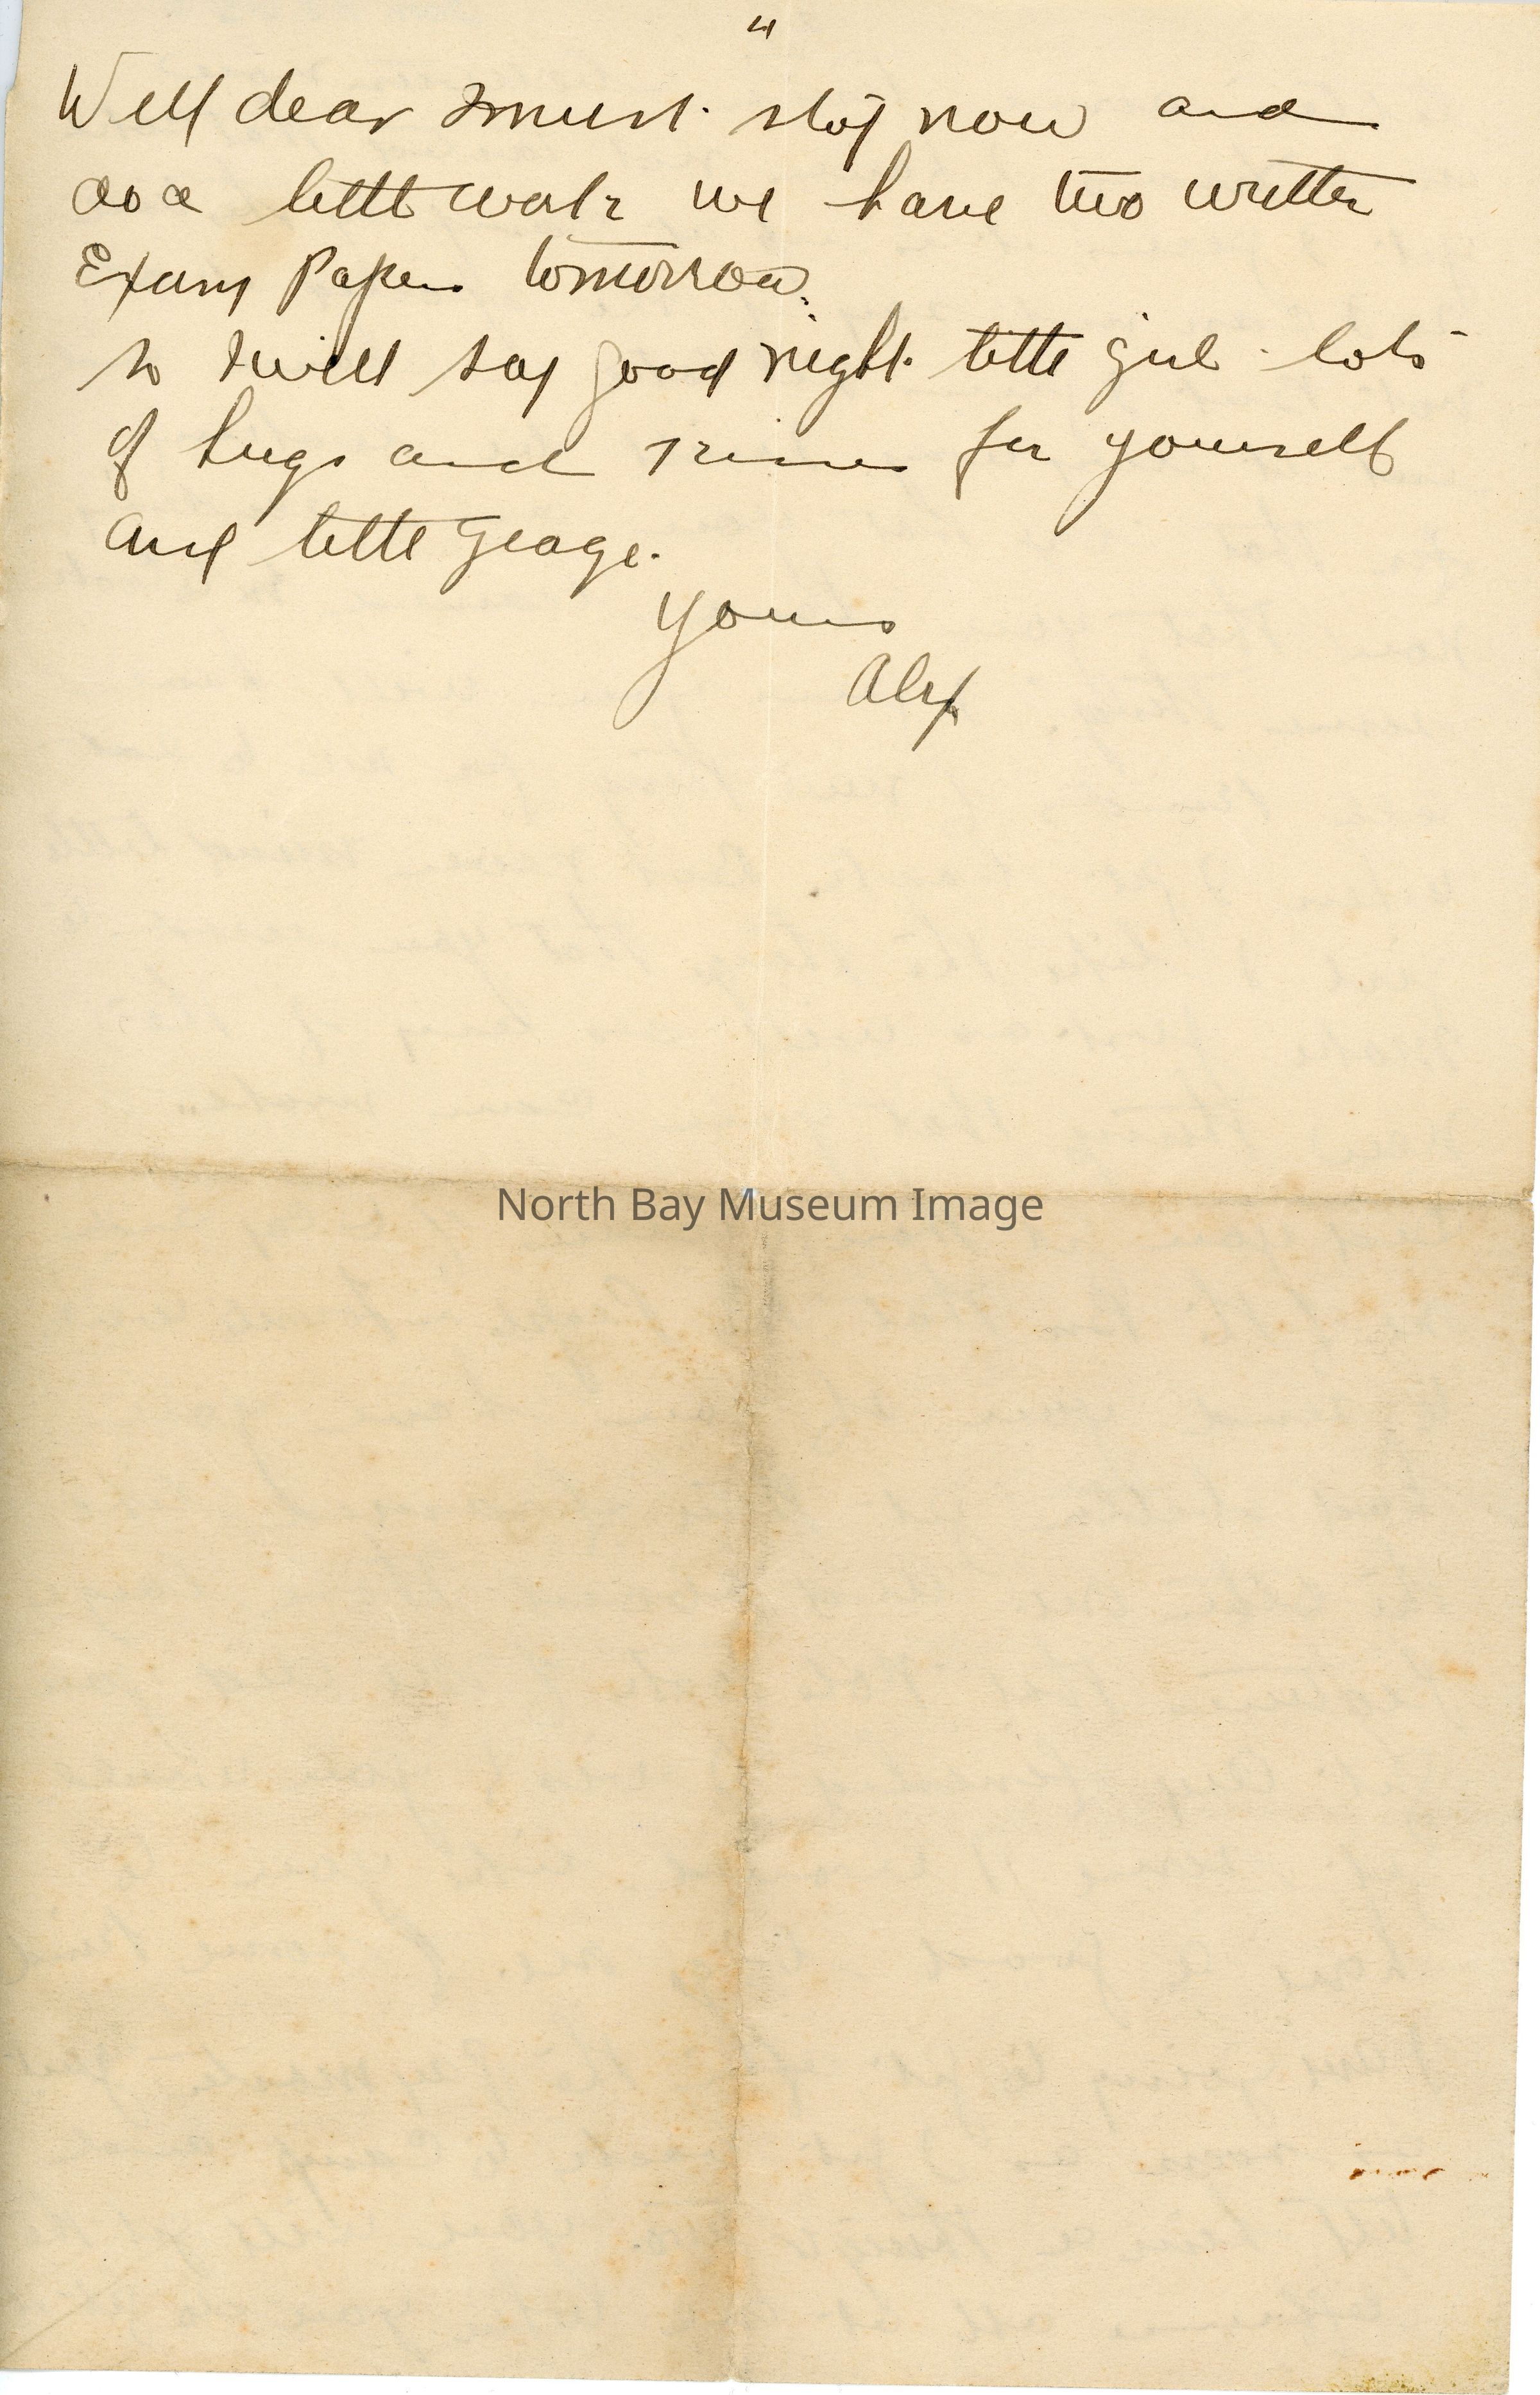 4
Well dear I must stop now and
do a little work we have two written
Exam Papers tomorrow.
so I will say good night little girl lots
of hugs and kisses for yourself
and little George.
Yours
Alex
North Bay Museum Image